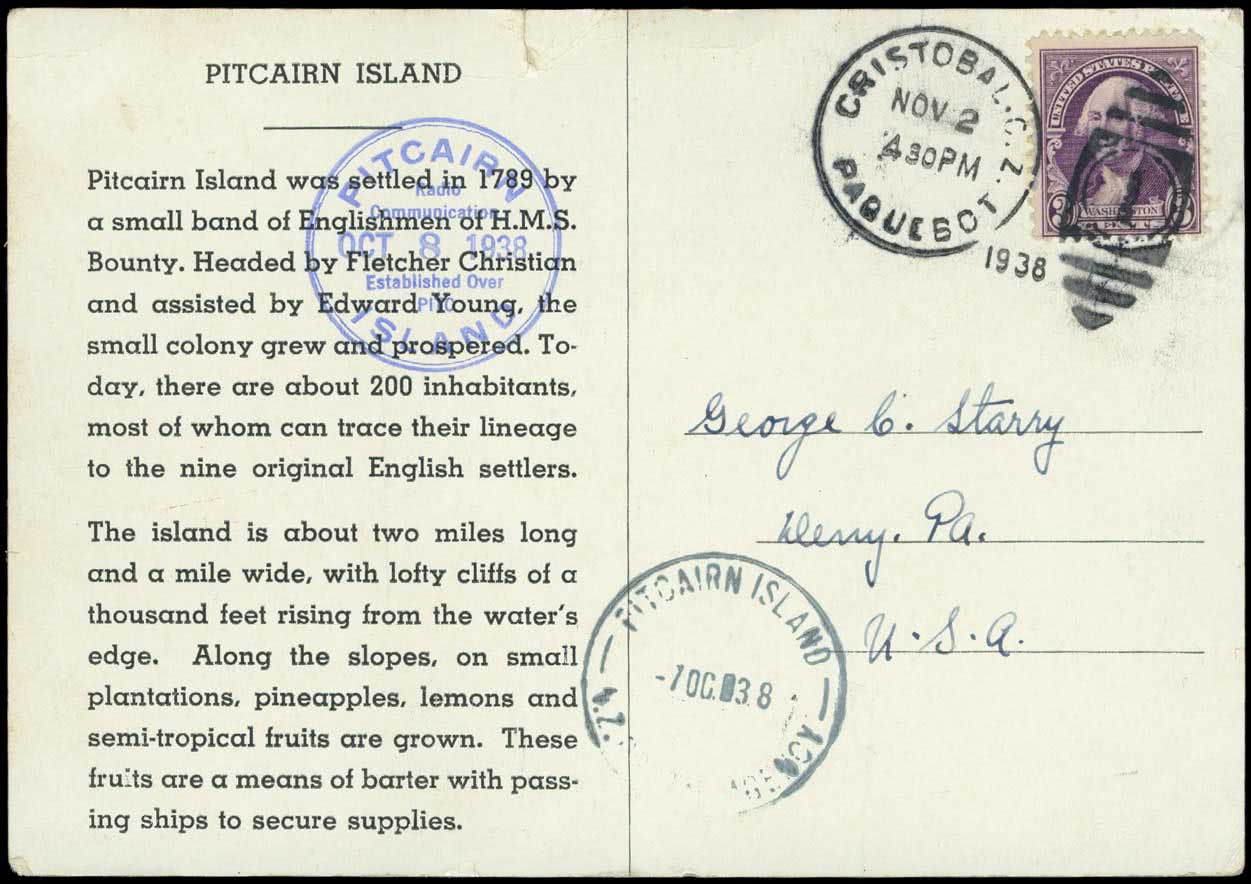 PITCAIRN ISLAND
Pitcairn Island was settled in 1789 by
a small band of Englishmen of H.M.S.
Bounty. Headed by Fletcher Christian
and assisted by Edward Young, the
small colony grew and prospered. To-
day, there are about 200 inhabitants,
most of whom can trace their lineage
to the nine original English settlers.
The island is about two miles long
and a mile wide, with lofty cliffs of a
thousand feet rising from the water's
edge. Along the slopes, on small
plantations, pineapples, lemons and
semi-tropical fruits are grown. These
fruits are a means of barter with pass-
ing ships to secure supplies.
PITCAIRN
Radio
Communication
OCT 8 1938
Established Over
PITC
ISLAND
CRISTOBAL. C. Z.
NOV 2
4 30 PM
PAQUEBOT
1938
UNITED STATES POSTAGE
3 WASHINGTON 3
George C. Starry
Derry. Pa.
U. S. A.
PITCAIRN ISLAND
-7 OC. 38
N.Z. AGENCY